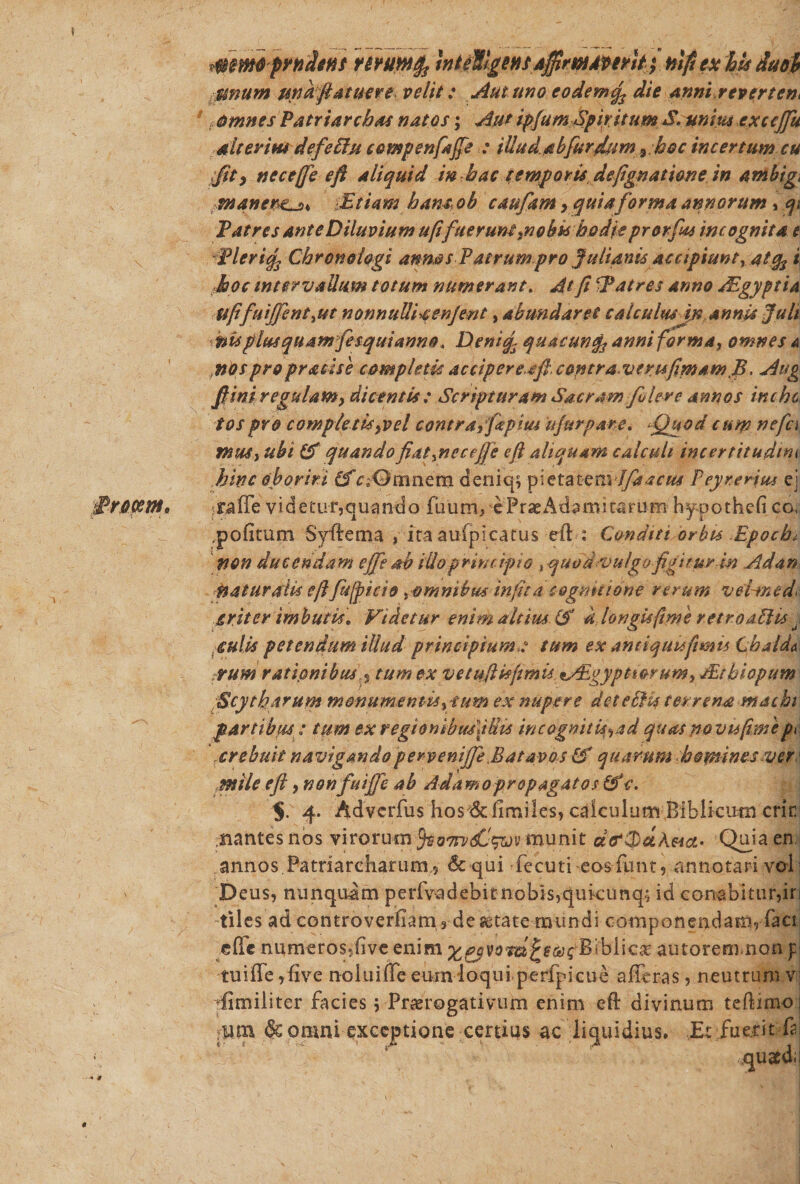 nemo prudens rerumq́; intelligens affirmaverit; nisi ex his duob
unum unà statuere velit: Aut uno eodemq́; die anni reverten
omnes Patriarchas natos; Aut ipsum Spiritum S. unius excessu
alterius defectu compensasse : illud absurdum, hoc incertum cu
sit, necesse est aliquid in hac temporis designatione in ambig
manere. Etiam hanc ob causam, quia forma annorum, q
Patres ante Diluvium usi fuerunt, nobis hodie prorsus incognita e
Pleriq́; Chronologi annos Patrum pro Julianis accipiunt, atq́; i
hoc intervallum totum numerant. At si Patres anno Ægyptia
usi fuissent, ut nonnulli censent, abundaret calculus in annis Juli
nis plus quam sesquianno. Deniq́; quacunq́; anni forma, omnes a
nos pro præcisè completis accipere est contra verusimam B. Aug
stini regulam, dicentis: Scripturam Sacram solere annos incho
tos pro completis, vel contra, sæpius usurpare. Quod cum nesci
mus, ubi & quando fiat, necesse est aliquam calculi incertitudini
hinc oboriri &c. Omnem deniq; pietatem Isaacus Peyrerius ej
Proœm. rasse videtur, quando suum, è PræAdamitarum hypothesi co
positum Systema, ita auspicatus est: Conditi orbis Epoch
non ducendam esse ab illo principio, quod vulgo figitur in Adan
naturalis est suspicio, omnibus insita cognitione rerum vel med
criter imbutis. Videtur enim altius & à longissimè retroactis
culis petendum illud principium: tum ex antiquissimis Chaldæ
rum rationibus, tum ex vetustissimis Ægyptiorum, Æthiopum
Scytharum monumentis, tum ex nupere detectis terrenæ machi
partibus: tum ex regionibus illis incognitis, ad quas novissimè p
crebuit navigando pervenisse Batavos & quarum homines ver
mile est, non fuisse ab Adamo propagatos &c.
§. 4. Adversus hos & similes, calculum Biblicum crin
nantes nos virorum θεοπνεύστων munit ἀσφάλεια. Quia en
annos Patriarcharum, & qui secuti eos sunt, annotari vol
Deus, nunquàm persvadebit nobis, quicunq; id conabitur, in
tiles ad controversiam, de ætate mundi componendam, faci
esse numeros, sive enim χρονοτάξεως Biblicæ autorem non p
tuisse, sive noluisse eum loqui perspicuè asseras, neutrum v
similiter facies; Prærogativum enim est divinum testimo
um & omni exceptione certius ac liquidius. Et fuerit sa
quæd